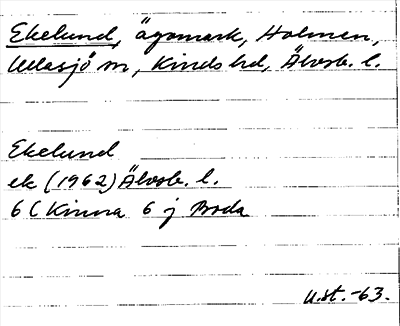 Ekelund, ägomark, Holmen,
Ullasjö sn, Kinds hd, Älvsb. l.
Ekelund
ek (1962) Älvsb. l.
6 C Kinna 6 j Broda
U.st. -63.